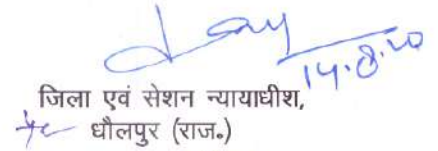 14.8.20
जिला एवं सेशन न्यायाधीश,
धौलपुर (राज॰)